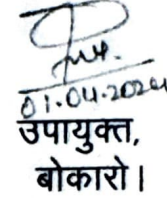 01.04.2024
उपायुक्त,
बोकारो।